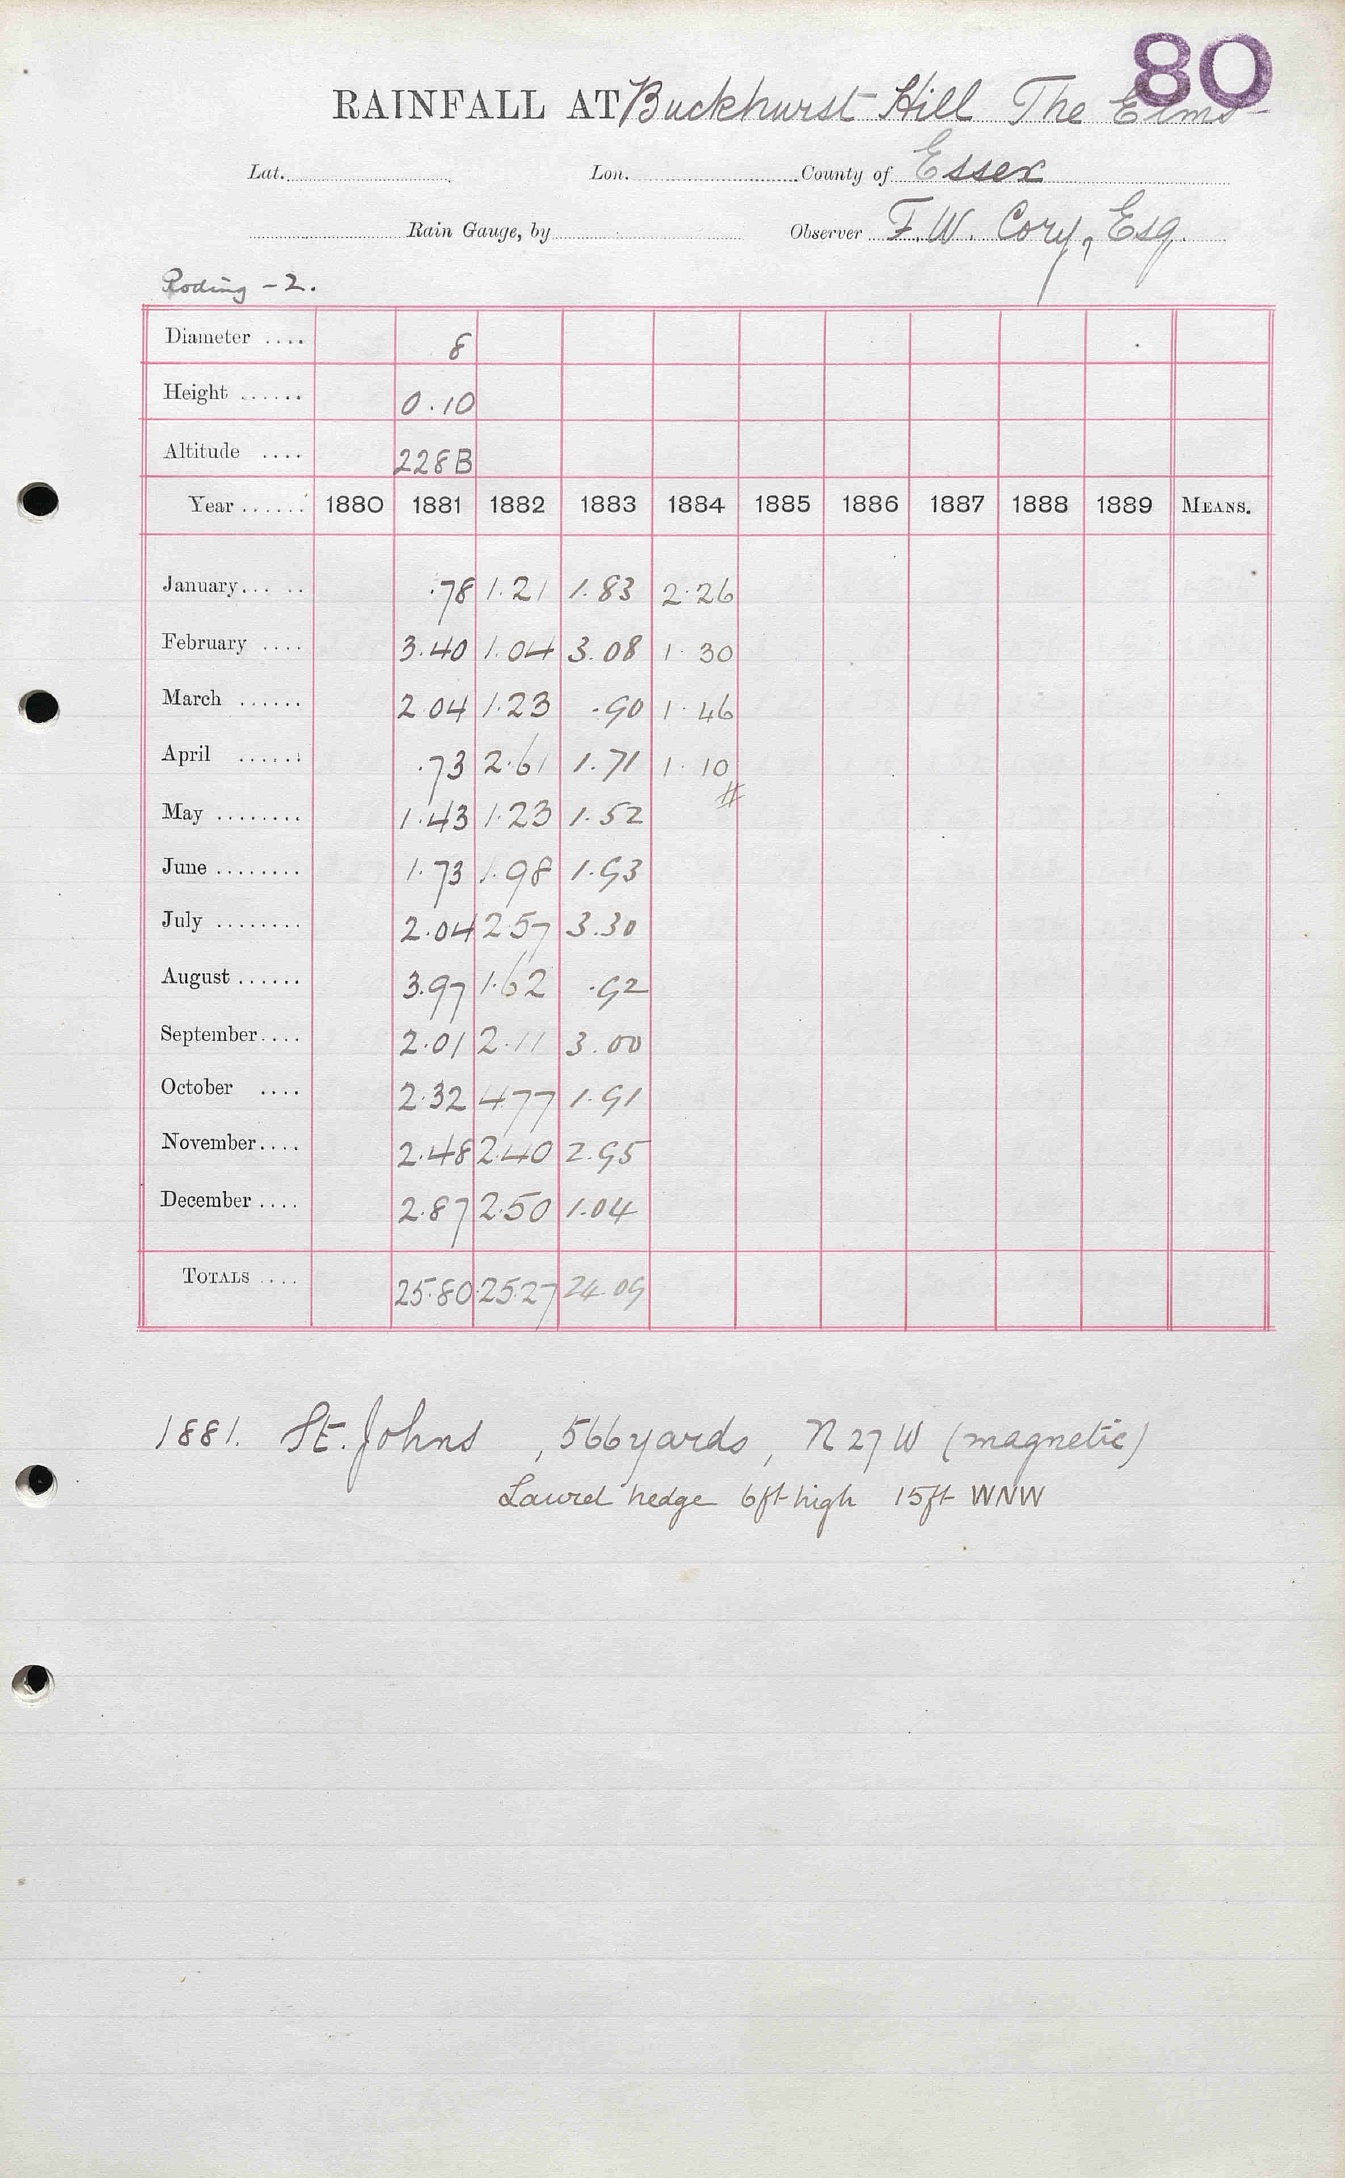 80
RAINFALL AT Buckhurst Hill The Elms
Lat. Lon. County of Essex
Rain Gauge, by Observer F. W. Cory, Esq.
Roding - 2.
Diameter .... 8
Height ...... 0.10
Altitude .... 228B
Year ...... 1880 1881 1882 1883 1884 1885 1886 1887 1888 1889 MEANS.
January... .. .78 1.21 1.83 2.26
February .... 3.40 1.04 3.08 1.30
March ...... 2.04 1.23 .90 1.46
April ...... .73 2.61 1.71 1.10
#
May ........ 1.43 1.23 1.52
June ........ 1.73 1.98 1.93
July ........ 2.04 2.57 3.30
August ...... 3.97 1.62 .92
September.... 2.01 2.11 3.00
October .... 2.32 4.77 1.91
November.... 2.48 2.40 2.95
December .... 2.87 2.50 1.04
TOTALS .... 25.80 25.27 24.09
1881. St. Johns , 566 yards, N 27 W (magnetic)
Laurel hedge 6ft high 15ft WNW